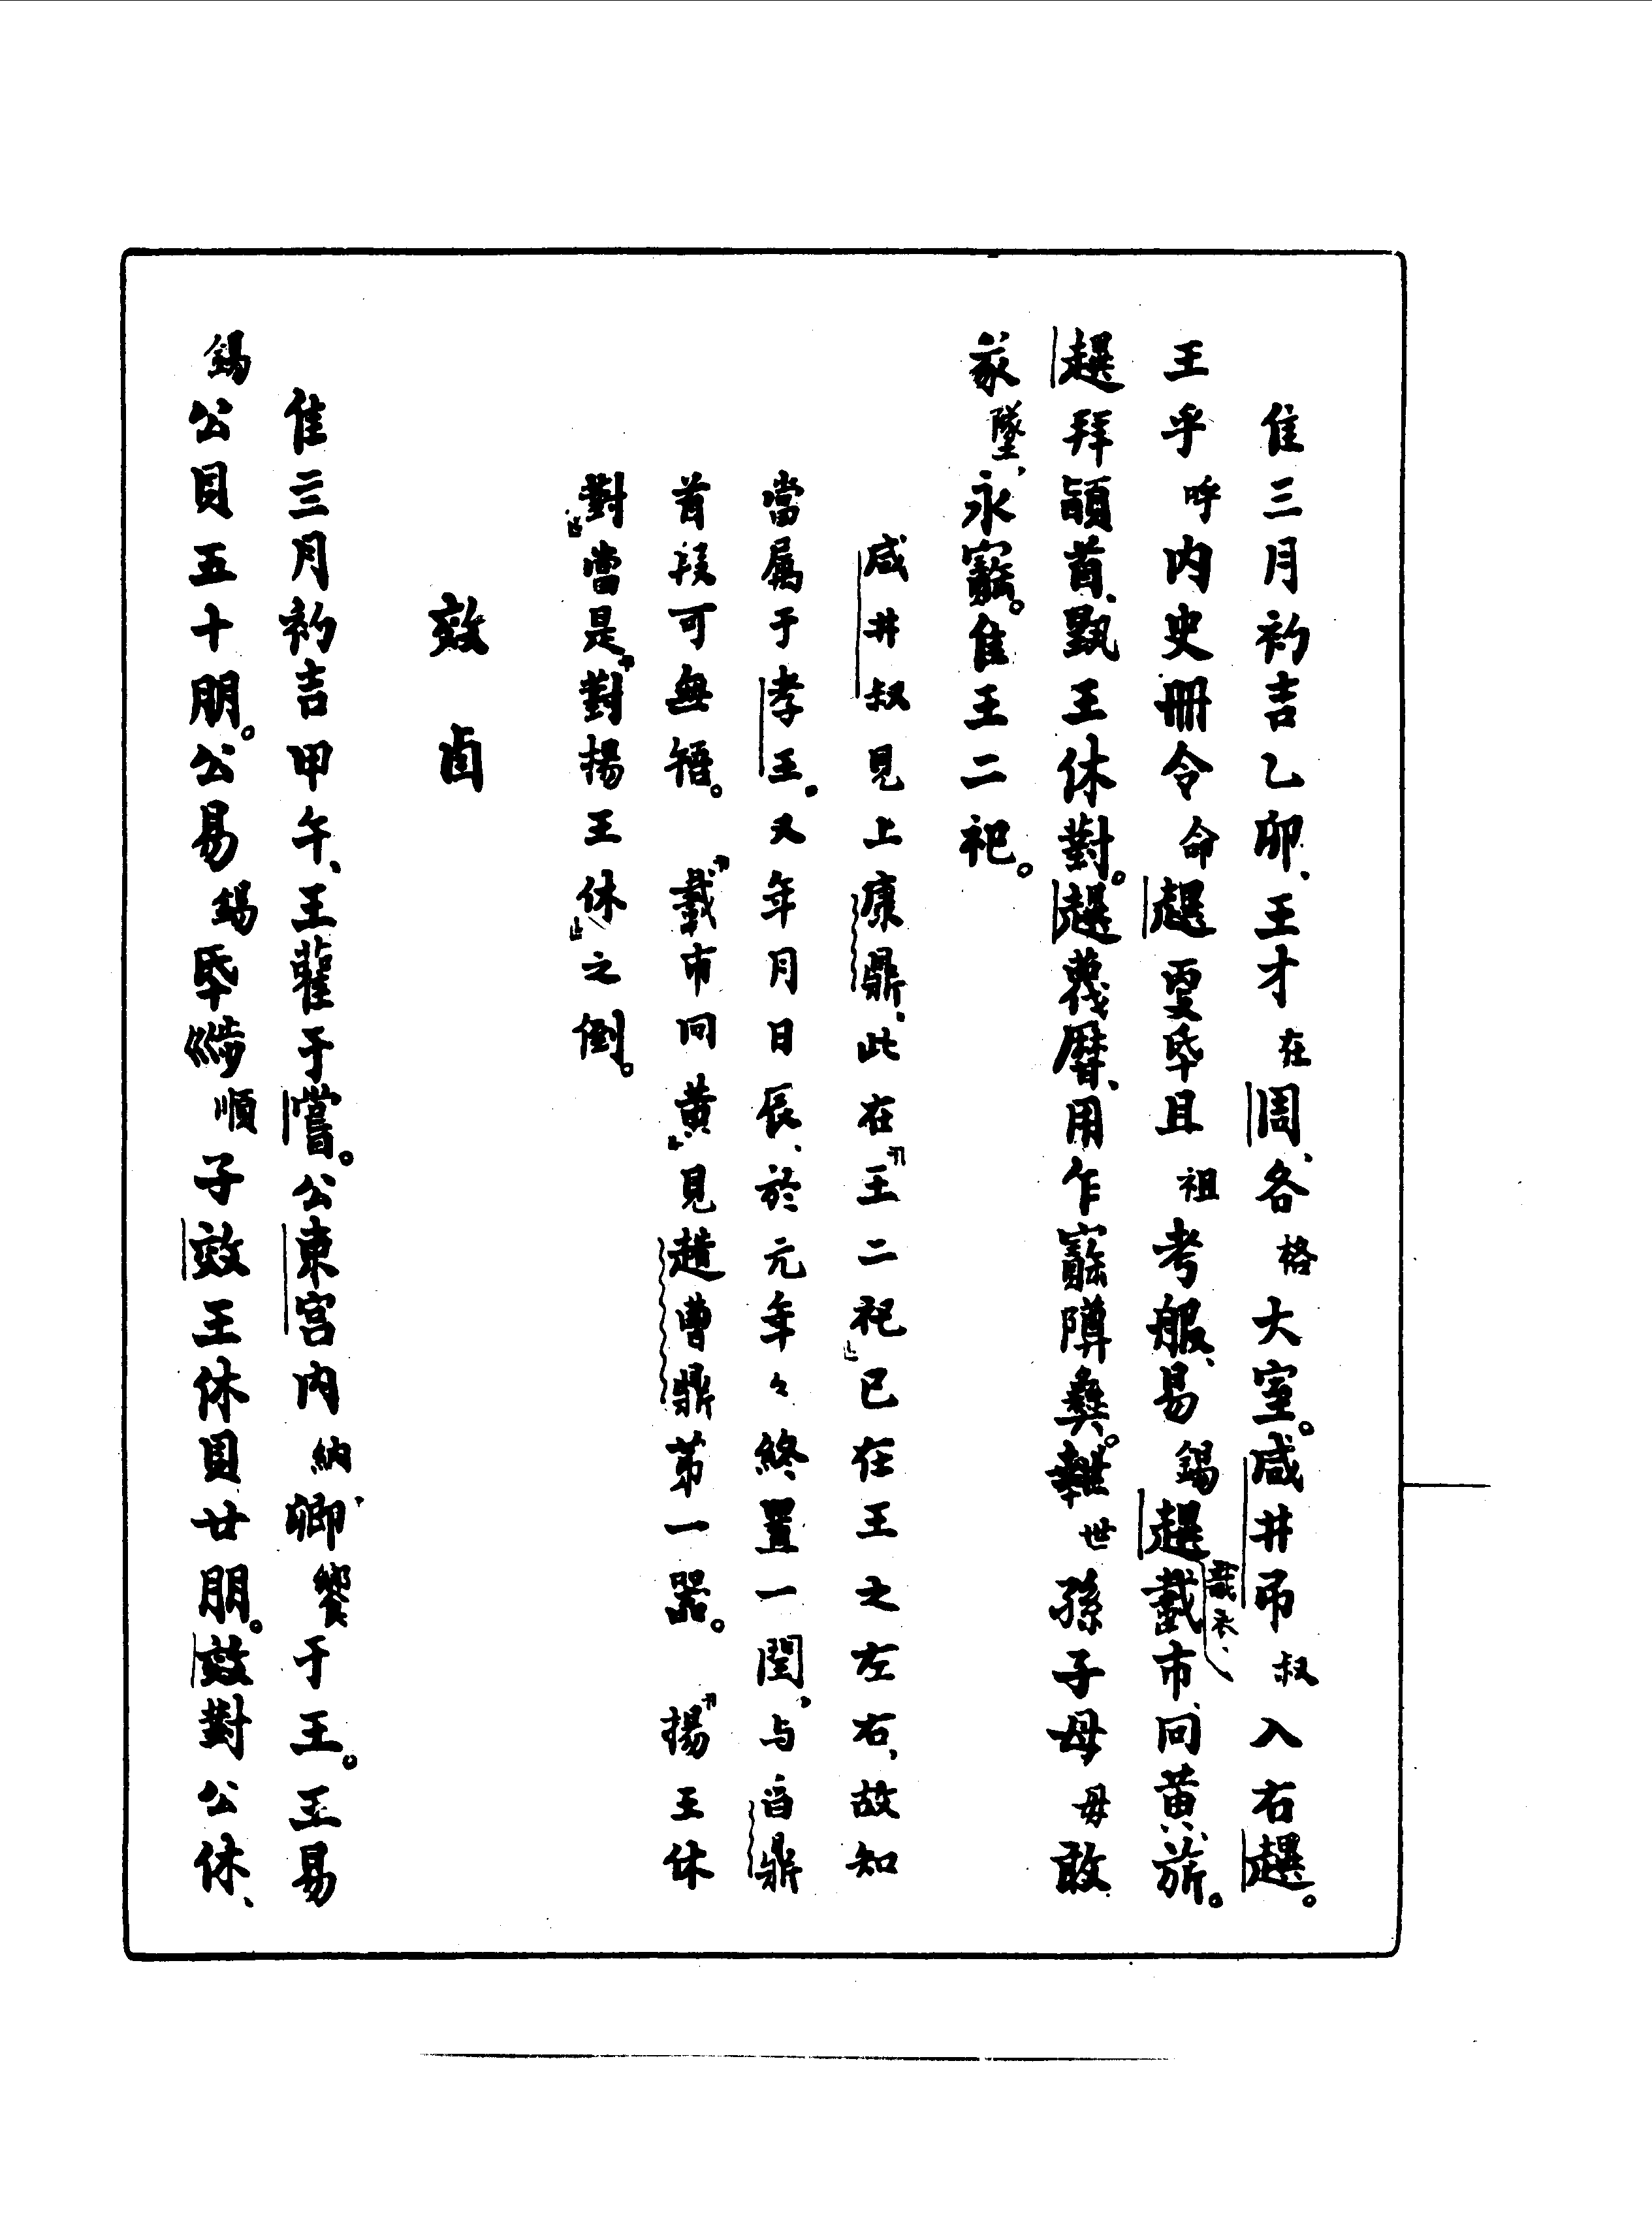 隹三月初吉乙卯、王才在周、各格大室。咸井弔叔入右趩。
王乎呼內史冊令命趩更氒且祖考服、易錫趩戠衣、戠市、冋黃、旂。
趩拜䭫首、揚王休對。趩蔑曆、用乍寶䵼彝。世孫子毋毋敢
墜、永寶。隹王二祀。
咸井叔見上康鼎、此在『王二祀』已在王之左右、故知
當屬于孝王。又年月日辰、於元年年終置一閏、与曶鼎
首段可無啎。『戠市冋黃』見趞曹鼎第一器。『揚王休
對』當是『對揚王休』之倒。
效卣
隹三月初吉甲午、王雚于嘗。公東宮內納卿饗于王。王易
錫公貝五十朋。公易錫氒涉順子效王休貝廿朋。效對公休、